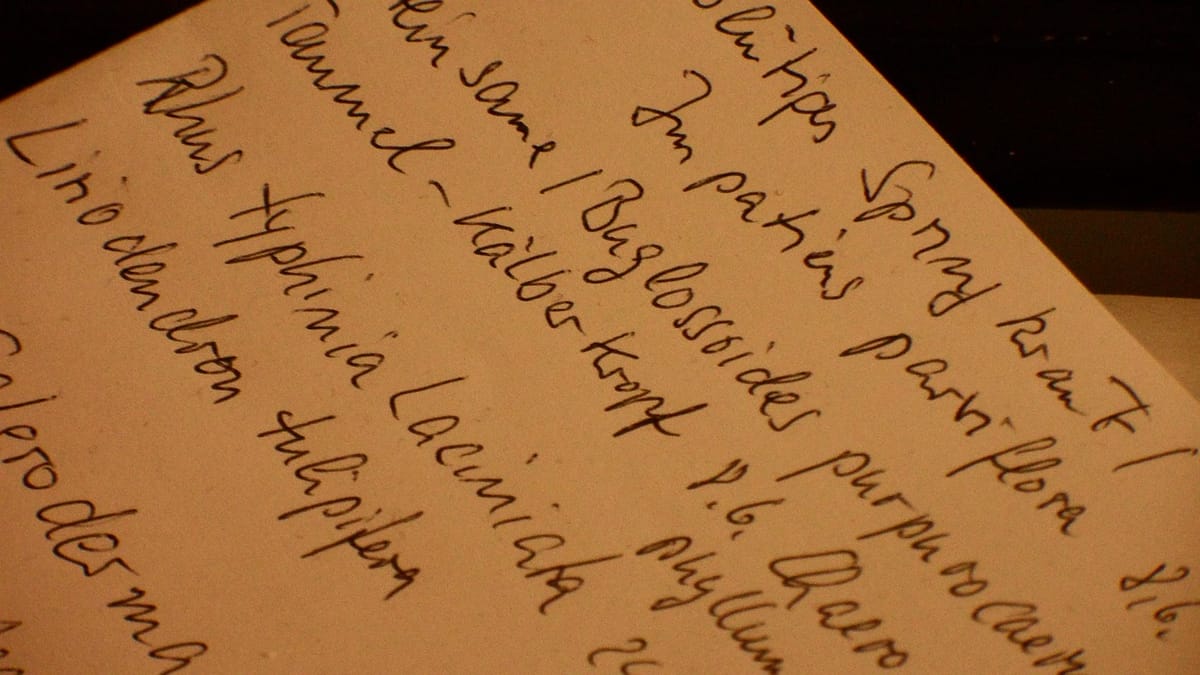 lütiges Springkraut /
Impatiens parviflora 8.6.
einsame / Buglossoides purpurocaer
Taumel-Kälberkropf 8.6. Chaero
phyllum
Rhus typhinia Laciniata
Liriodendron tulipifera
leroderma